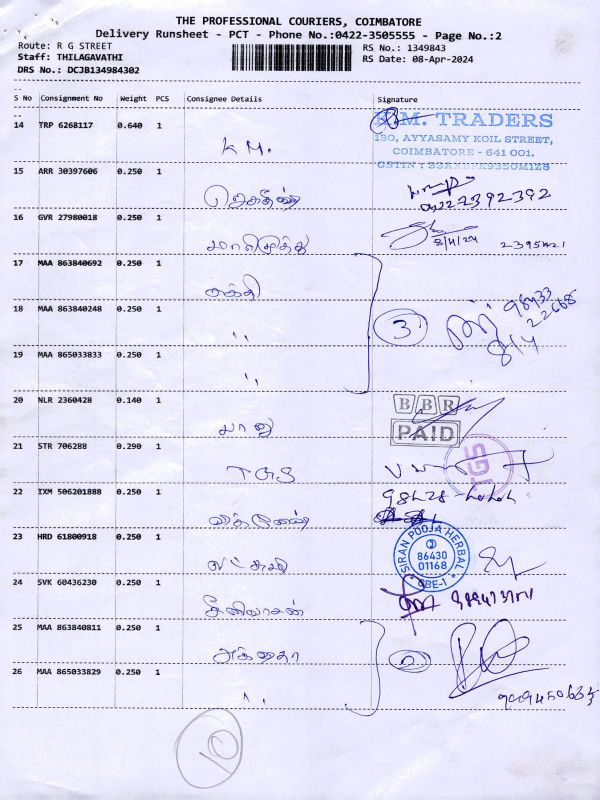 THE PROFESSIONAL COURIERS, COIMBATORE
Delivery Runsheet - PCT - Phone No.:0422-3505555 - Page No.:2
Route: R G STREET RS No.: 1349843
Staff: THILAGAVATHI RS Date: 08-Apr-2024
DRS No.: DCJB134984302
S No Consignment No Weight PCS Consignee Details Signature
14 TRP 6268117 0.640 1
K.M. TRADERS
130, AYYASAMY KOIL STREET,
COIMBATORE - 641 001.
K M.
15 ARR 30397606 0.250 1
ஜெகதீஸ்
0422 2392392
16 GVR 27980018 0.250 1
மாரிமுத்து
2395421
17 MAA 863840692 0.250 1
சக்தி
18 MAA 863840248 0.250 1
"
3
98433
22668
8/4
19 MAA 865033833 0.250 1
"
20 NLR 2360428 0.140 1
பானு
BBR
PAID
21 STR 706288 0.290 1
TGS
TGS
22 IXM 506201888 0.250 1
விக்னேஷ்
23 HRD 61800918 0.250 1
SIRAN POOJA HERBAL
86430
01168
CBE-1
24 SVK 60436230 0.250 1
சீனிவாசன்
25 MAA 863840811 0.250 1
2
26 MAA 865033829 0.250 1
"
10